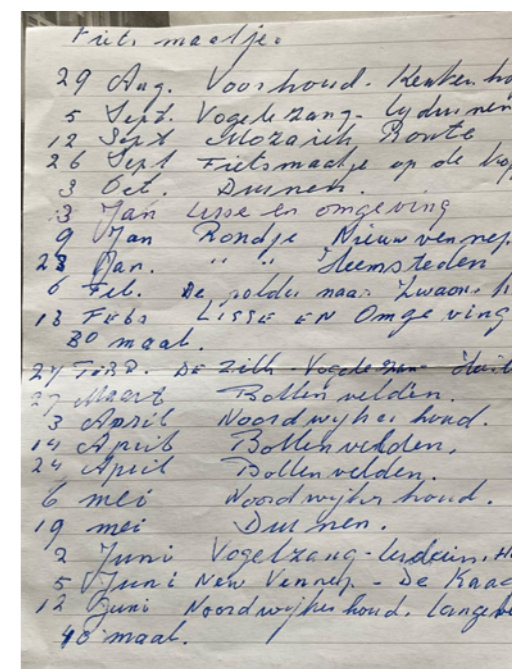 Fiets maatje.
29 Aug. Voorhoud. Keuken ho
5 Sept. Vogelezang- lyduinen
12 Sept Mozaiek Route
26 Sept Fietsmaatje op de
3 Oct. Duinen.
3 Jan Lisse en omgeving
9 Jan Rondje Nieuw vennep.
23 Jan. " " Heemsteden
6 Feb. De polder naar
13 Febr LISSE EN Omgeving
30 maal.
27 FEBR. De Zilk - Vogelezan-
27 Maart Bollenvelden.
3 April Noordwijkerhoud.
14 April Bollenvelden.
24 April Bollenvelden.
6 mei Noordwijkerhoud.
19 mei Duinen.
2 Juni Vogelzang-
5 Juni New Vennep. - De Kaag
12 Juni Noordwijkerhoud. Langeve
40 maal.